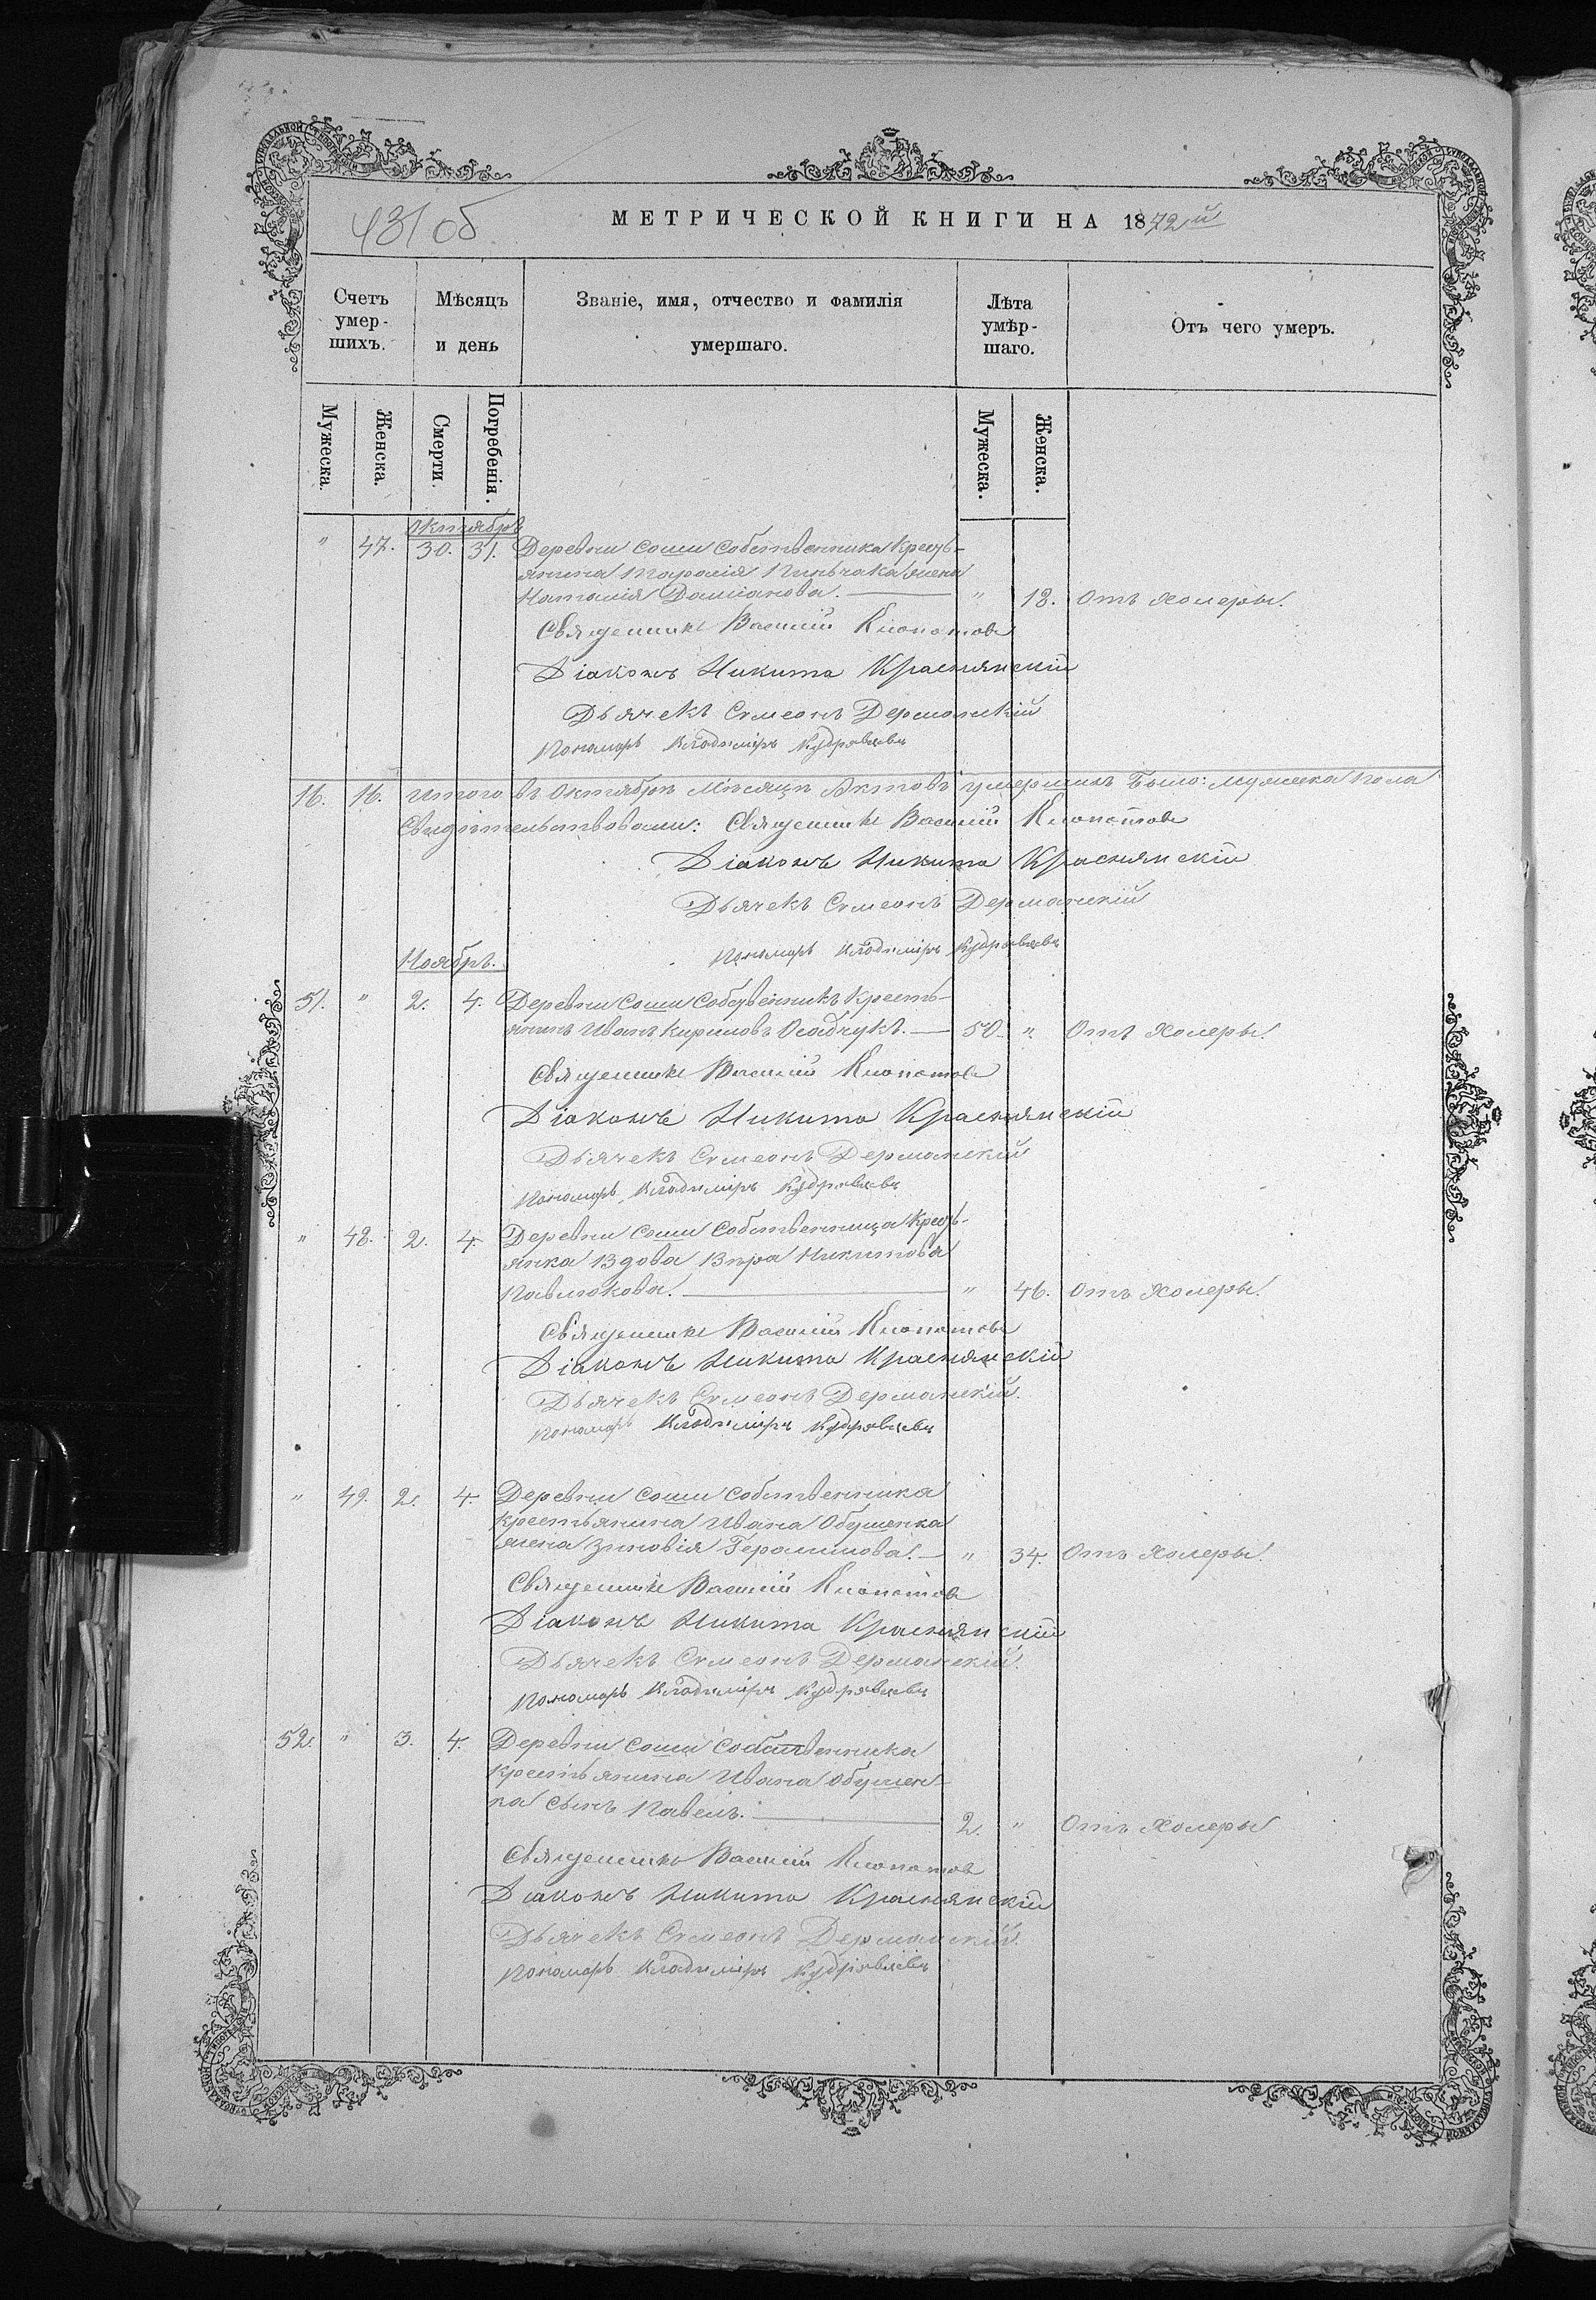 431 об
МЕТРИЧЕСКОЙ КНИГИ НА 1872й
Счетъ умер-шихъ.
Мѣсяцъ и день
Званіе, имя, отчество и фамилія умершаго.
Лѣта умѣр-шаго.
Отъ чего умеръ.
Мужеска. Женска. Смерти. Погребенія. Мужеска. Женска.
Октябрь
" 47. 30. 31. Деревни Соши Собственника Кресть-
янина Тарасія Пинчака жена
Наталія Даміанова. " 18. Отъ холеры.
Священникъ Василій Клопотовъ
Діаконъ Никита Краснянскій
Дьячекъ Симеонъ Дерманскій
Пономарь Владиміръ Кудрявцевъ
16. 16. Итого въ Октябрѣ Мѣсяцѣ Актовъ умершихъ Было: Мужеска пола
Свидѣтельствовали: Священникъ Василій Клопотовъ
Діаконъ Никита Краснянскій
Дьячекъ Симеонъ Дерманскій
Пономарь Владиміръ Кудрявцевъ
Ноябрь.
51. " 2. 4. Деревни Соши Собственникъ Кресть-
янинъ Иванъ Кириловъ Осадчукъ. 50. " Отъ Холеры.
Священникъ Василій Клопотовъ
Діаконъ Никита Краснянскій
Дьячекъ Симеонъ Дерманскій
Пономарь Владиміръ Кудрявцевъ
" 48. 2. 4. Деревни Соши Собственница Кресть-
янка Вдова Вѣра Никитова
Павлюкова. " 46. Отъ Холеры.
Священникъ Василій Клопотовъ
Діаконъ Никита Краснянскій
Дьячекъ Симеонъ Дерманскій.
Пономарь Владиміръ Кудрявцевъ
" 49. 2. 4. Деревни Соши Собственника
Крестьянина Ивана Обушенка
жена Зиновія Герасимова. " 34. Отъ Холеры.
Священникъ Василій Клопотовъ
Діаконъ Никита Краснянскій
Дьячекъ Симеонъ Дерманскій.
Пономарь Владиміръ Кудрявцевъ
52. " 3. 4. Деревни Соши Собственника
Крестьянина Ивана Обушен-
ка сынъ Павелъ. 2. " Отъ Холеры
Священникъ Василій Клопотовъ
Діаконъ Никита Краснянскій
Дьячекъ Симеонъ Дерманскій.
Пономарь Владиміръ Кудрявцевъ